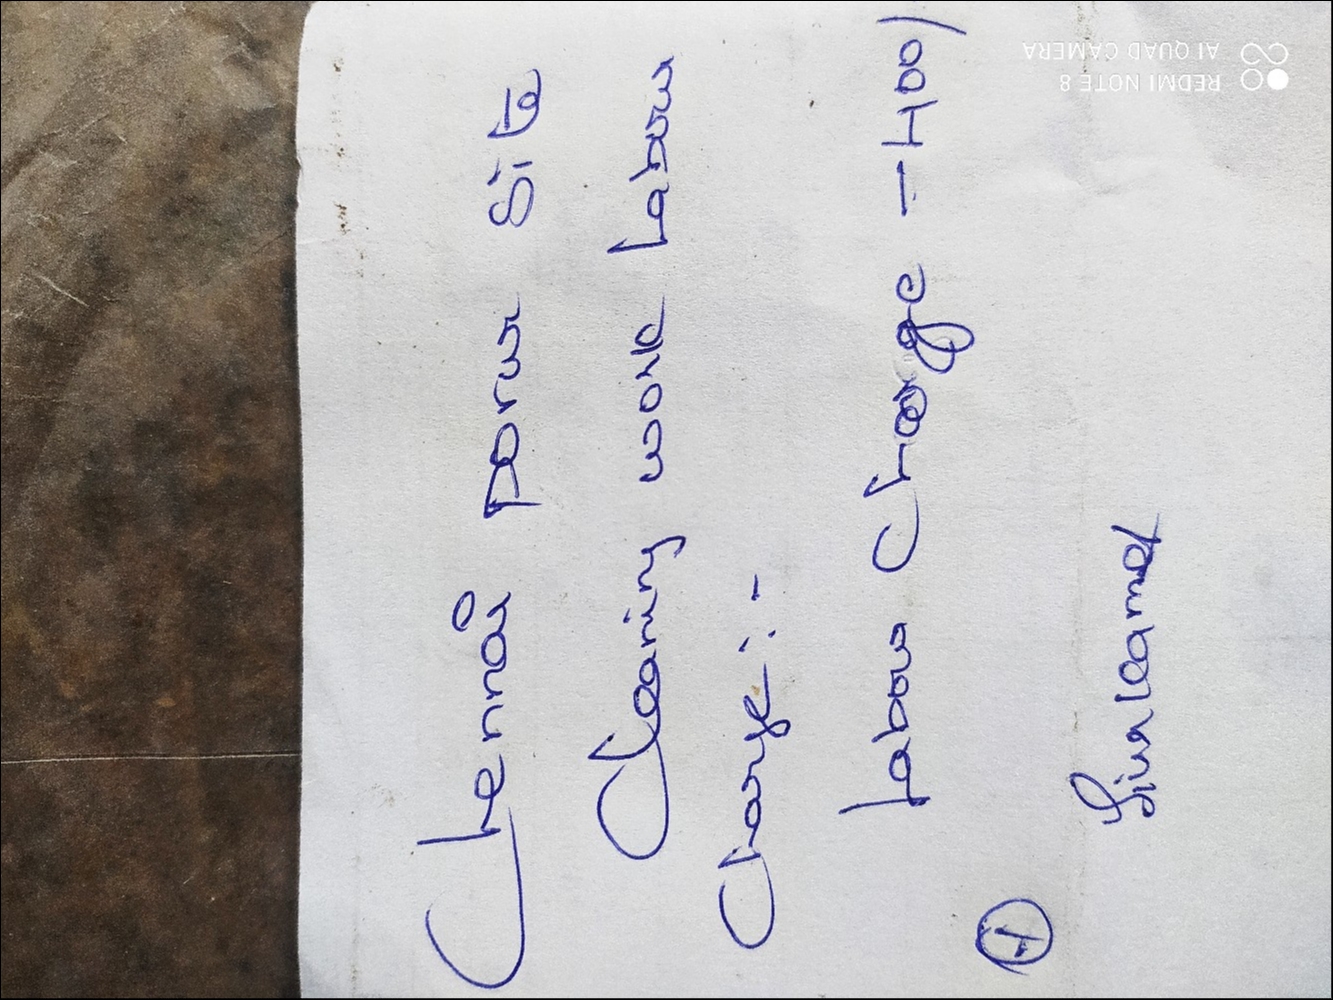 Chennai porur site
Cleaning work Labour
Charge :-
Labour Charge - 400/
Sivakamal
REDMI NOTE 8
AI QUAD CAMERA